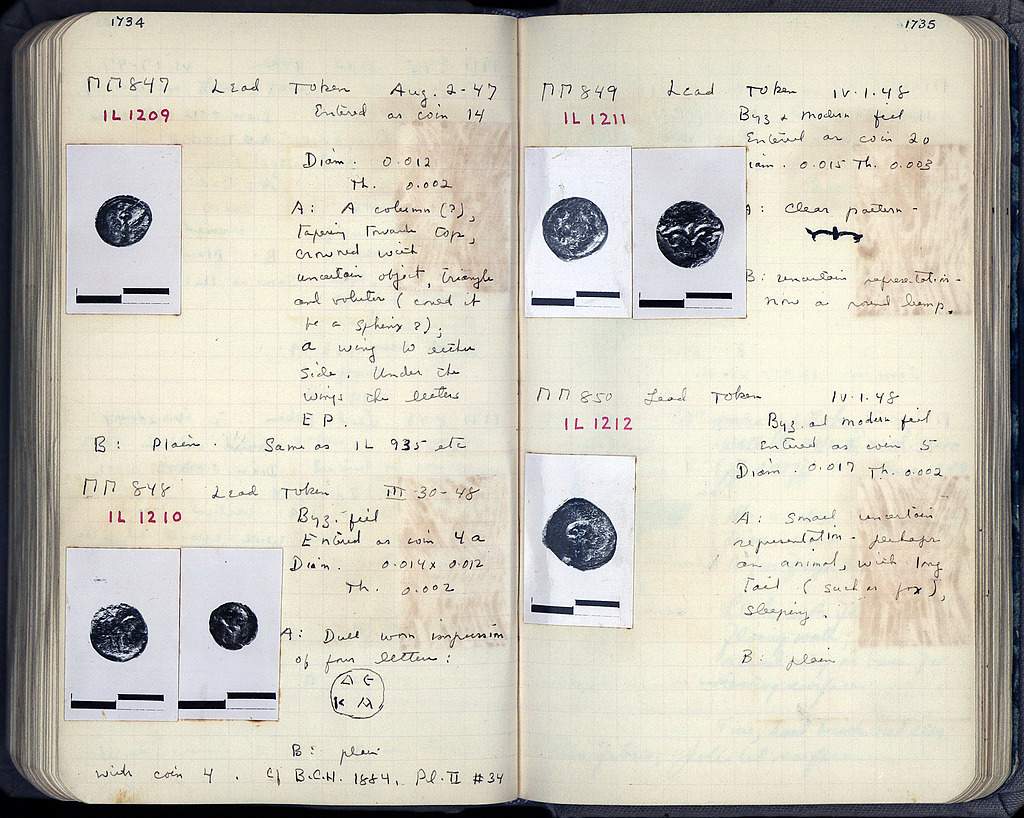 1734
ΠΠ 847 Lead Token Aug. 2-47
IL 1209
Entered as coin 14
Diam. 0.012
Th. 0.002
A: A column (?),
tapering towards top,
crowned with
uncertain object, triangle
and volutes (could it
be a sphinx?);
a wing to either
side. Under the
wings the letters
E P.
B: Plain. Same as IL 935 etc
ΠΠ 848 Lead Token III-30-48
IL 1210
Byz. fill
Entered as coin 4a
Diam. 0.014 x 0.012
Th. 0.002
A: Dull worn impression
of four letters:
Δ Ε
Κ
B: plain
with coin 4. Cf B.C.H. 1884, Pl. II #34
1735
ΠΠ 849 Lead Token IV-1-48
IL 1211
Byz & modern fill
Entered as coin 20
Diam. 0.015 Th. 0.003
A: Clear pattern -
B: uncertain representation -
now a round lump.
ΠΠ 850 Lead Token IV-1-48
IL 1212
Byz. and modern fill
Entered as coin 5
Diam. 0.017 Th. 0.002
A: Small uncertain
representation - perhaps
an animal, with long
tail (such as fox),
sleeping.
B: plain